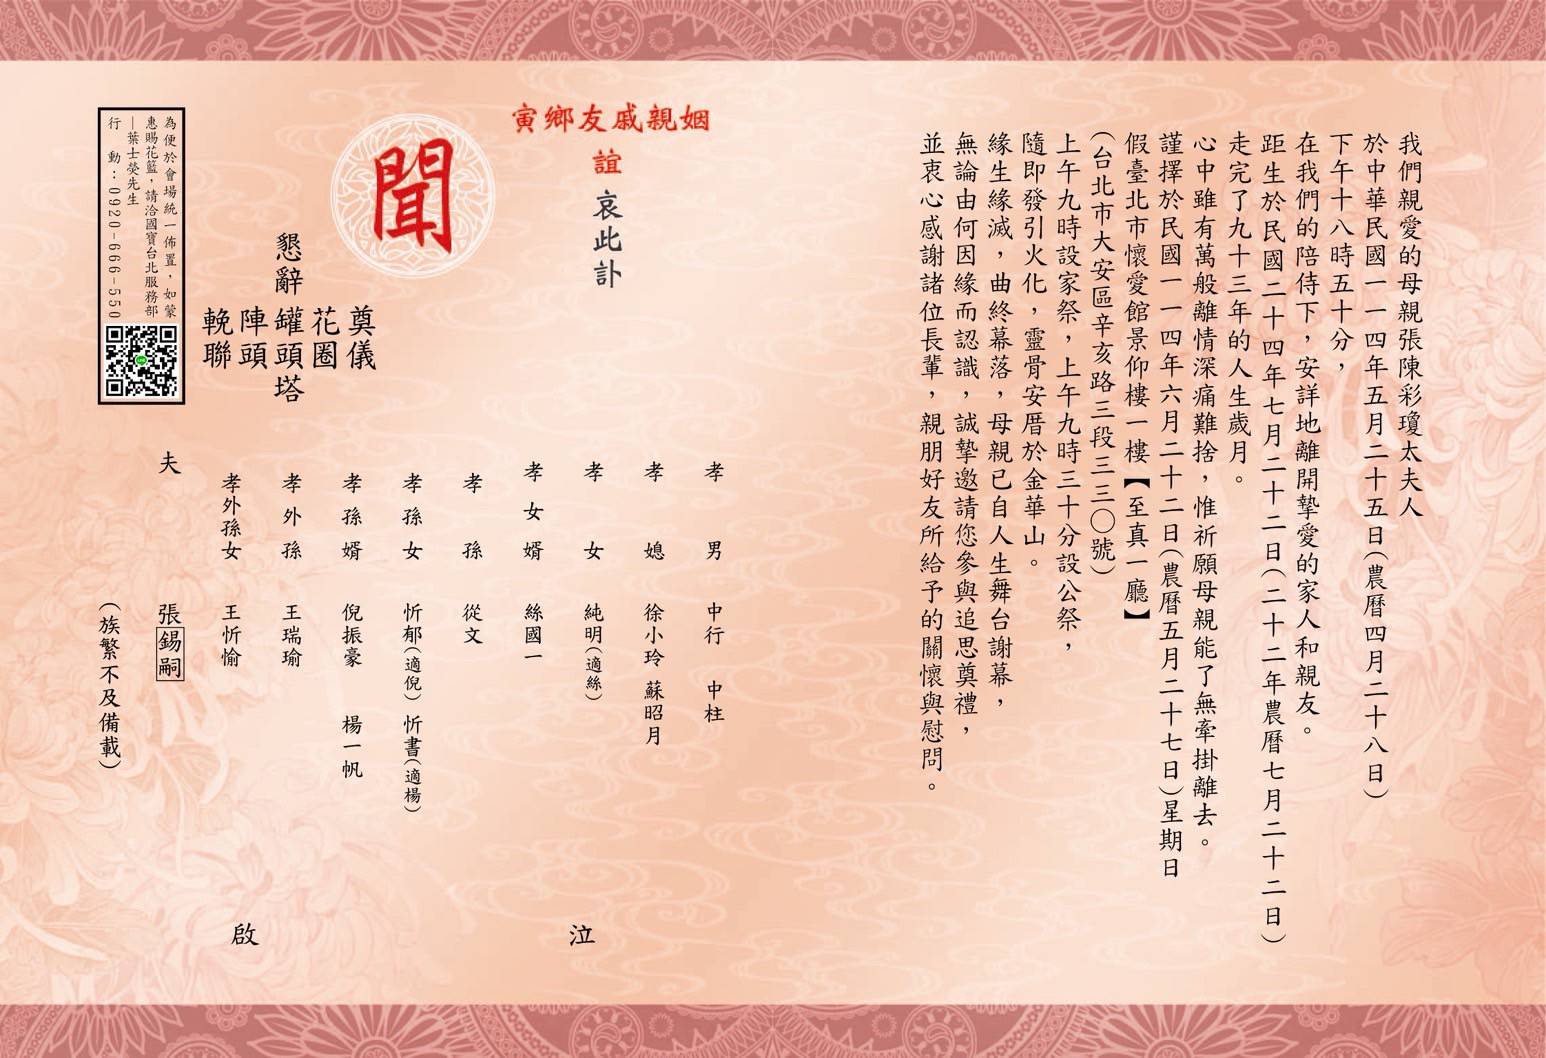 我們親愛的母親張陳彩瓊太夫人
於中華民國一一四年五月二十五日(農曆四月二十八日)
下午十八時五十分，
在我們的陪侍下，安詳地離開摯愛的家人和親友。
距生於民國二十四年七月二十二日(二十二年農曆七月二十二日)
走完了九十三年的人生歲月。
心中雖有萬般離情深痛難捨，惟祈願母親能了無牽掛離去。
謹擇於民國一一四年六月二十二日(農曆五月二十七日)星期日
假臺北市懷愛館景仰樓一樓【至真一廳】
(台北市大安區辛亥路三段三三〇號)
上午九時設家祭，上午九時三十分設公祭，
隨即發引火化，靈骨安厝於金華山。
緣生緣滅，曲終幕落，母親已自人生舞台謝幕，
無論由何因緣而認識，誠摯邀請您參與追思奠禮，
並衷心感謝諸位長輩，親朋好友所給予的關懷與慰問。
姻親戚友鄉寅
誼
哀此訃
聞
懇辭
奠儀
花圈
罐頭塔
陣頭
輓聯
為便於會場統一佈置，如蒙
惠賜花籃，請洽國寶台北服務部
—葉士榮先生
行動：0920-666-550
孝男 中行 中柱
孝媳 徐小玲 蘇昭月
孝女 純明(適絲)
孝女婿 絲國一
孝孫 從文
孝孫女 忻郁(適倪) 忻書(適楊)
孝孫婿 倪振豪 楊一帆
孝外孫 王瑞瑜
孝外孫女 王忻愉
夫 張錫嗣
(族繁不及備載)
泣
啟